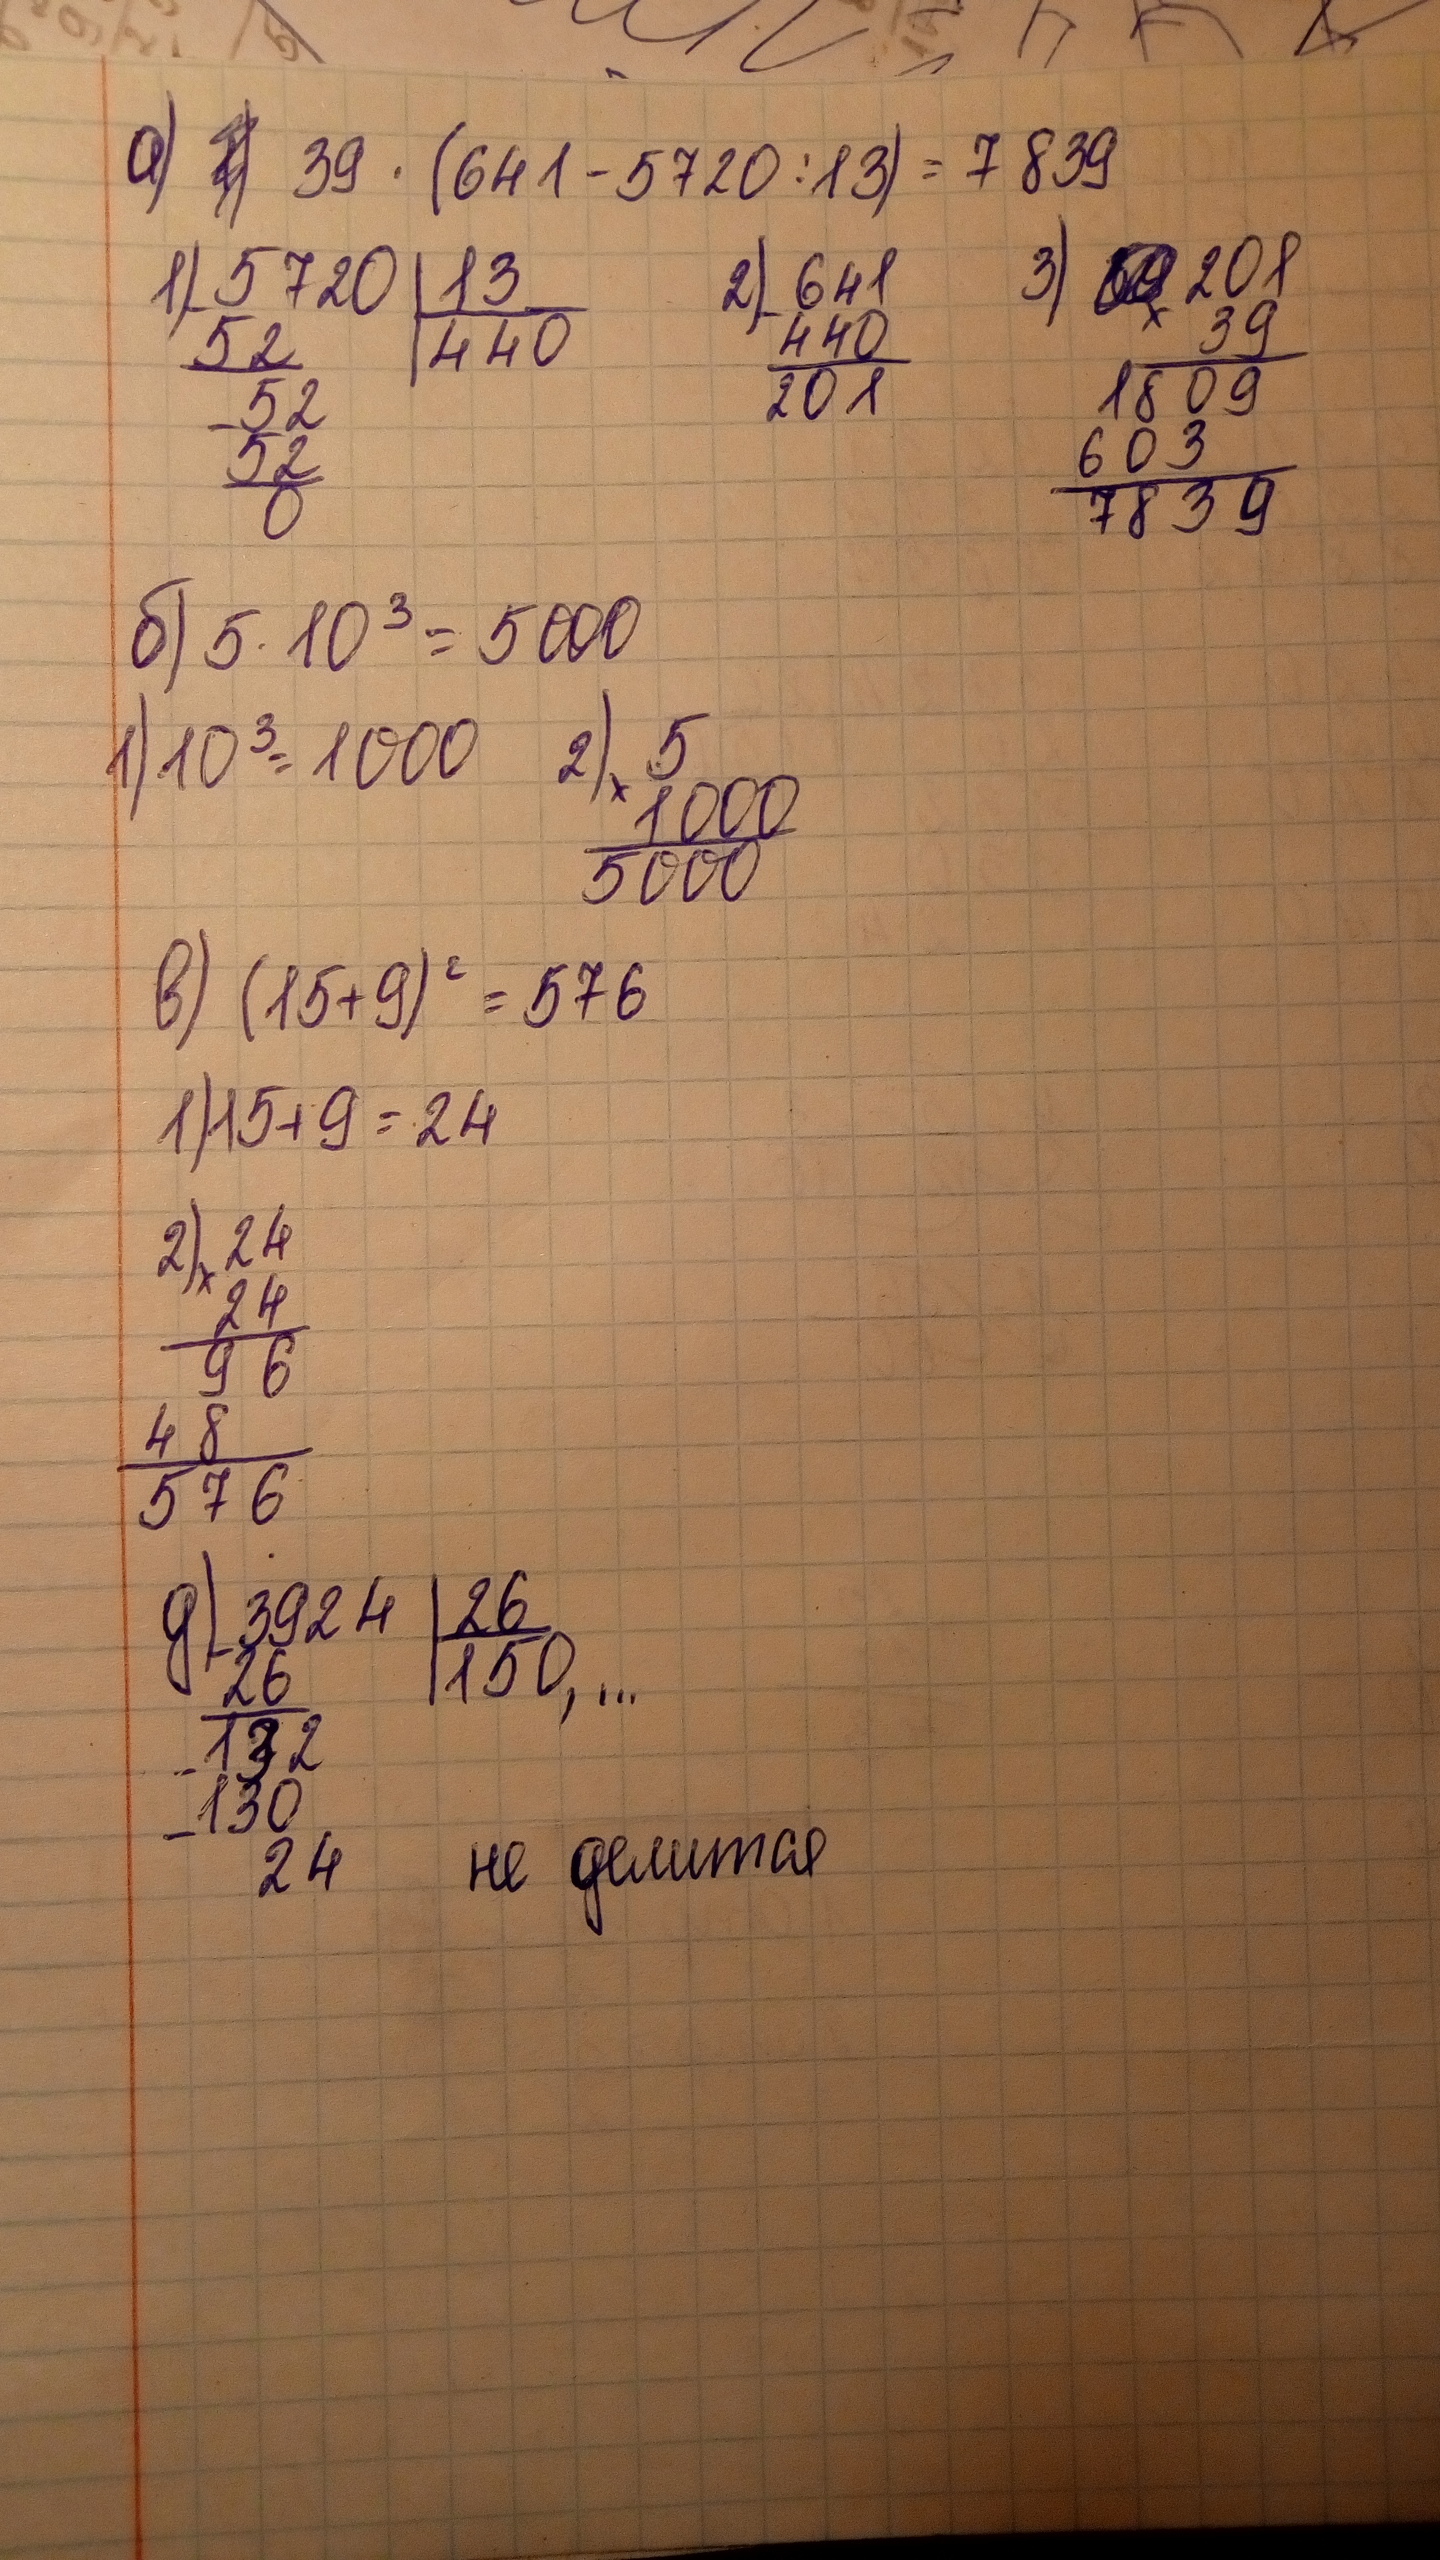 а) 39 · (641 - 5720 : 13) = 7839
1) 5720 | 13 2) 641 3) 201
- 52 440 - 440 × 39
- 52 201 1809
52 603
0 7839
б) 5 · 10³ = 5000
1) 10³ = 1000 2) 5
× 1000
5000
в) (15+9)² = 576
1) 15+9 = 24
2) 24
× 24
96
48
576
д) 3924 | 26
- 26 150, ...
- 132
- 130
24 не делится